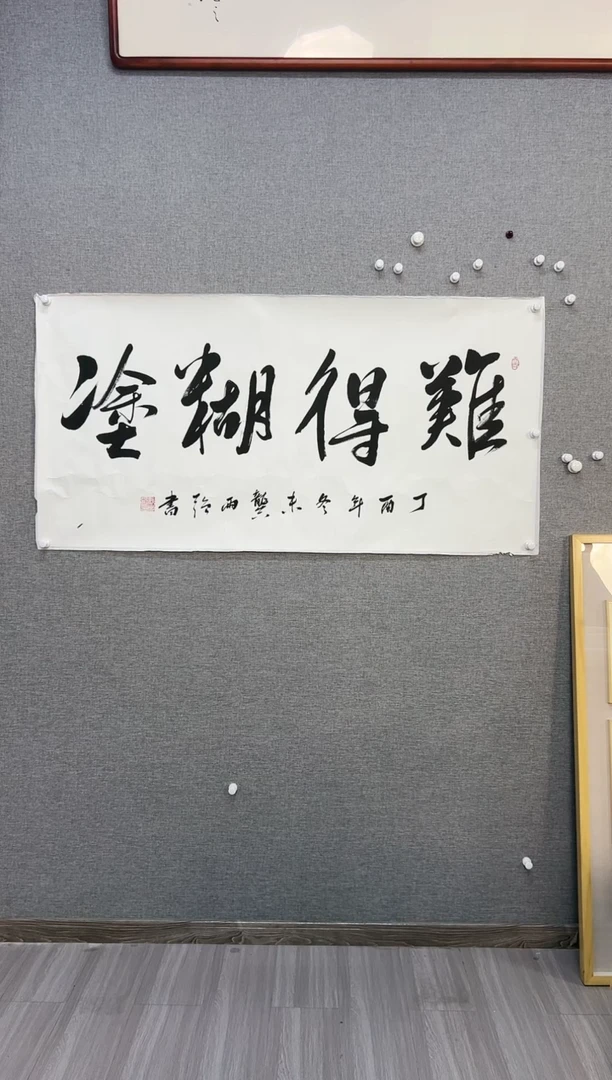 難得糊塗
丁酉年冬末龔雨玲書